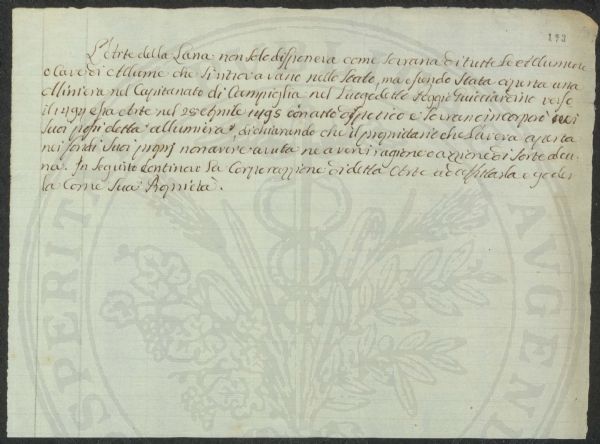 193
L'Arte della Lana non solo disponeva come sovrana di tutte le Allumiere
o Cave di Allume che si ritrovavano nello Stato, ma essendo stata aperta una
Miniera nel Capitanato di Campiglia nel Luogo detto Poggio Guicciardino verso
il 1494 essa Arte nel 28 Aprile 1495 con atto e sovrano incorporò nei
suoi detta allumiera, dichiarando che il proprietario che l'aveva aperta
nei fondi suoi proprj non avere avuta ne avervi ragione o azione di sorte alcu-
na. In seguito continuò la Corporazione di detta Arte ad affittarla e goder
la come sua Proprietà.
PROSPERITATI AUGENDAE